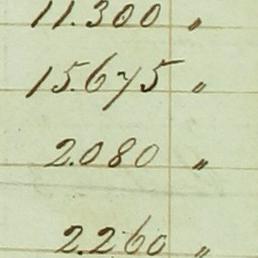 11.300 "
15.675 "
2.080 "
2.260 "